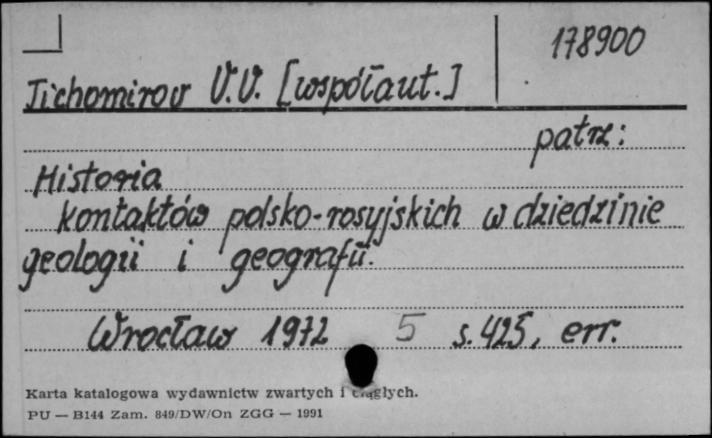 178900
Tichomirow V.V. [współaut.]
patrz:
Historia
kontaktów polsko-rosyjskich w dziedzinie
geologii i geografii.
Wrocław 1972 5 s. 425, err.
Karta katalogowa wydawnictw zwartych i ciągłych.
PU — B144 Zam. 849/DW/On ZGG — 1991